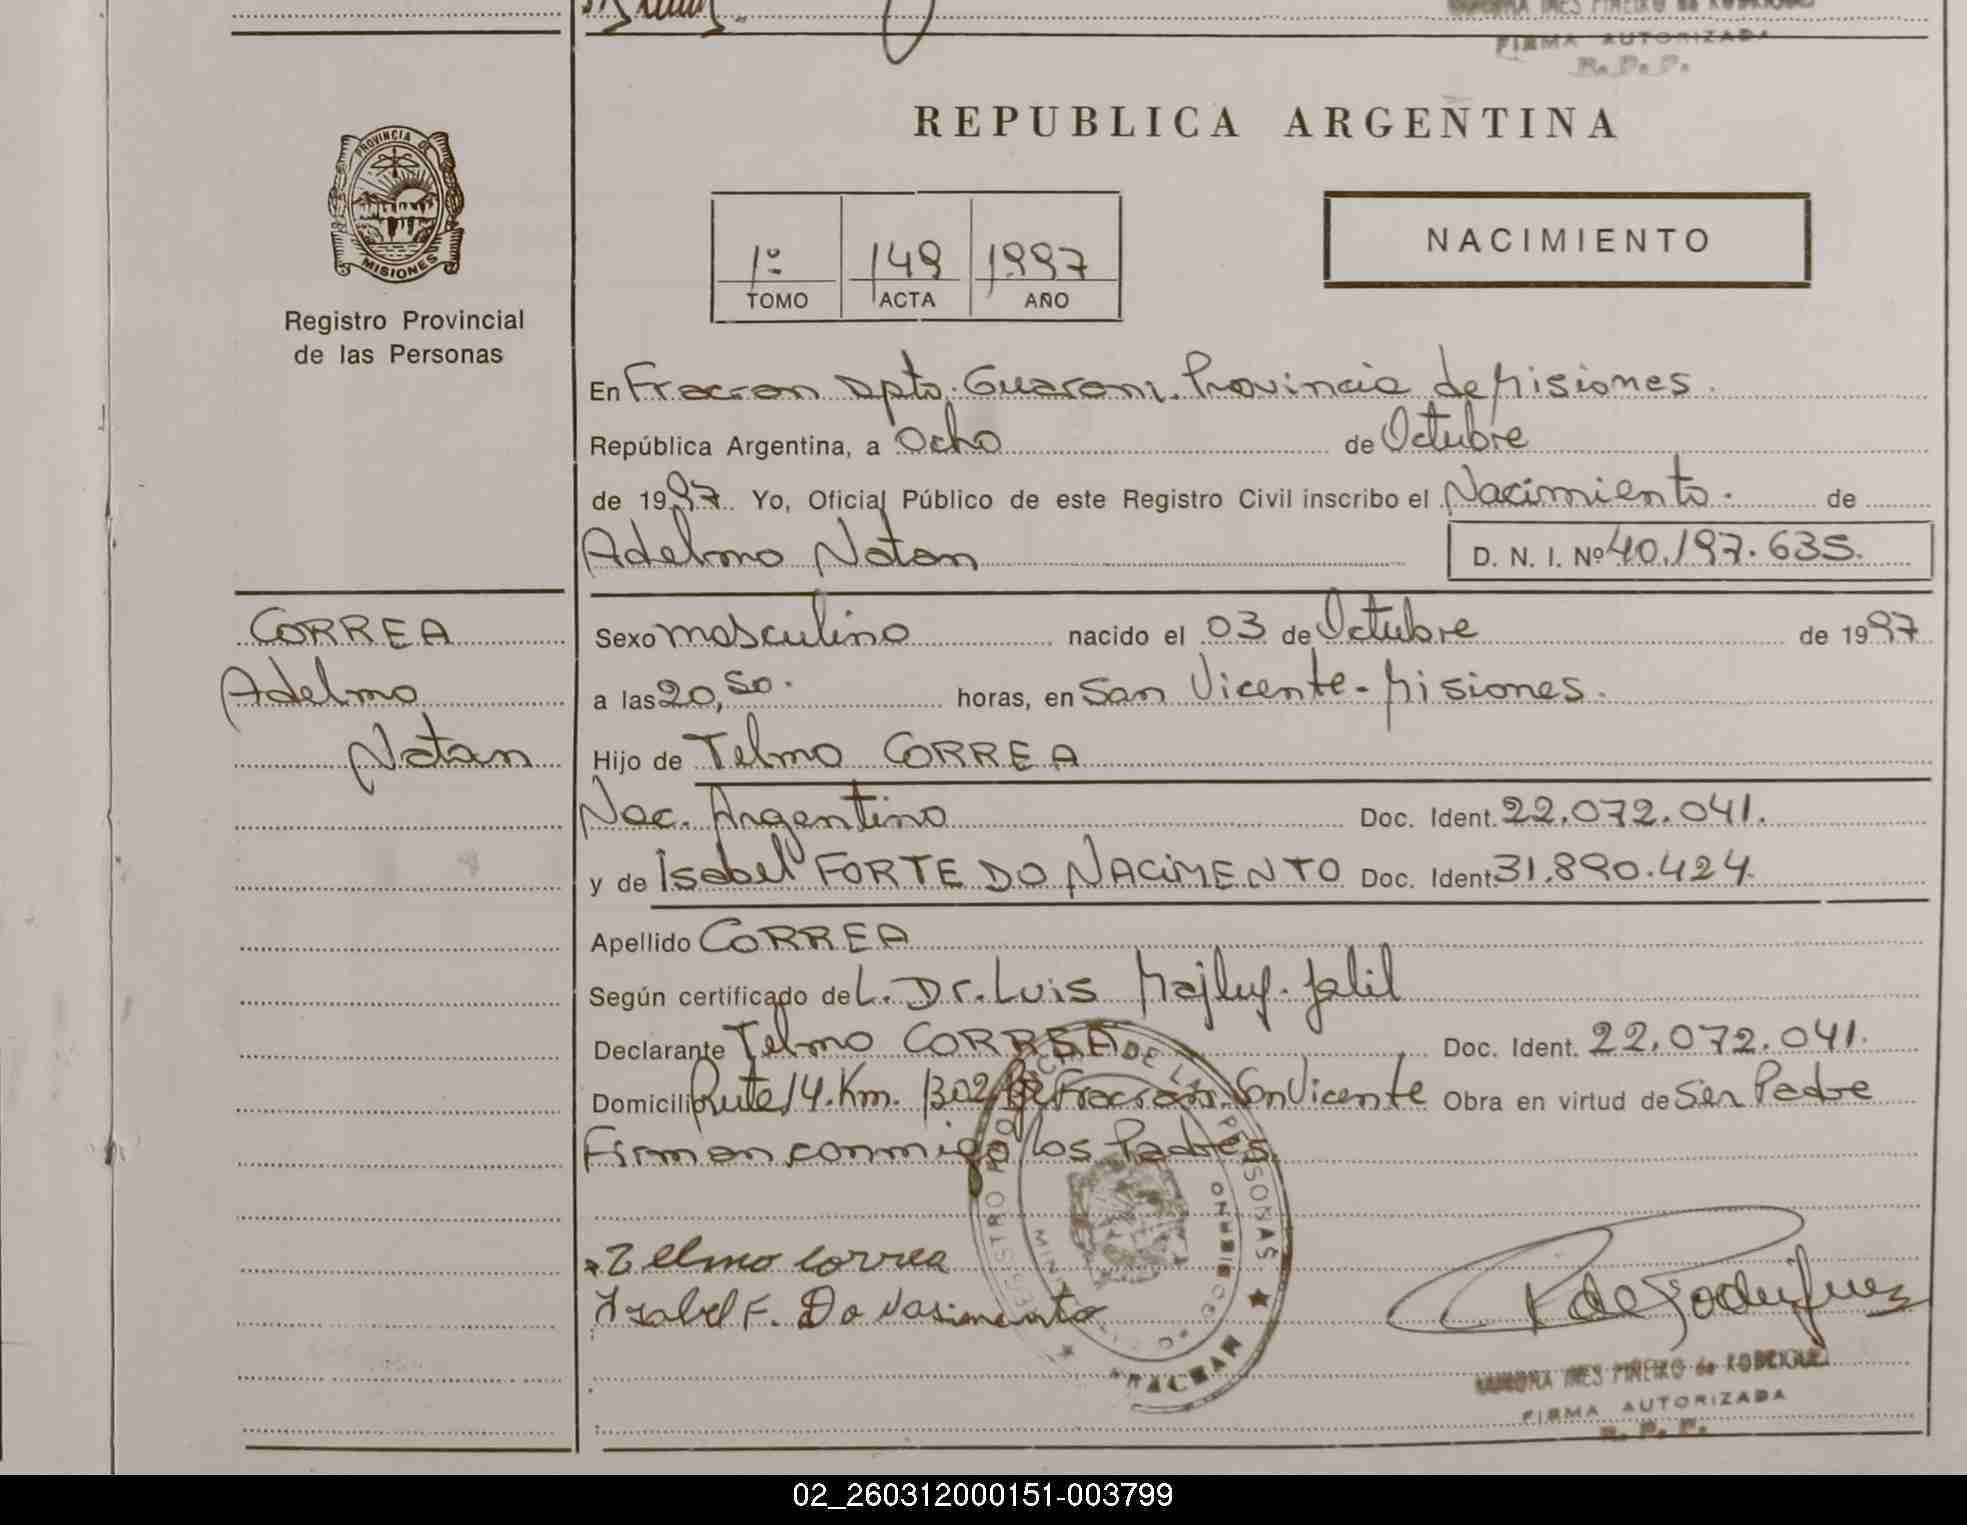 FIRMA AUTORIZADA
R. P. P.
PROVINCIA DE
MISIONES
Registro Provincial
de las Personas
REPUBLICA ARGENTINA
1º 149 1997
TOMO ACTA AÑO
NACIMIENTO
En Fracran Dpto. Guarani. Provincia de Misiones.
República Argentina, a Ocho de Octubre
de 1997. Yo, Oficial Público de este Registro Civil inscribo el Nacimiento. de
Adelmo Natan D. N. I. Nº 40.197.635.
CORREA
Adelmo
Natan
Sexo masculino nacido el 03 de Octubre de 1997
a las 20,50. horas, en San Vicente - Misiones.
Hijo de Telmo CORREA
Nac. Argentino Doc. Ident. 22.072.041.
y de Isabel FORTE DO NACIMENTO Doc. Ident. 31.890.424.
Apellido CORREA
Según certificado del Dr. Luis Majluf. Jalil
Declarante Telmo CORREA Doc. Ident. 22.072.041.
Domicilio Ruta 14. Km. 1302 Fracran. San Vicente Obra en virtud de Ser Padre
Firman conmigo los Padres.
Telmo Correa
Isabel F. Do Nasimento
P. de Rodriguez
INES PIÑEIRO de RODRIGUEZ
FIRMA AUTORIZADA
R. P. P.
FRACRAN
02_260312000151-003799